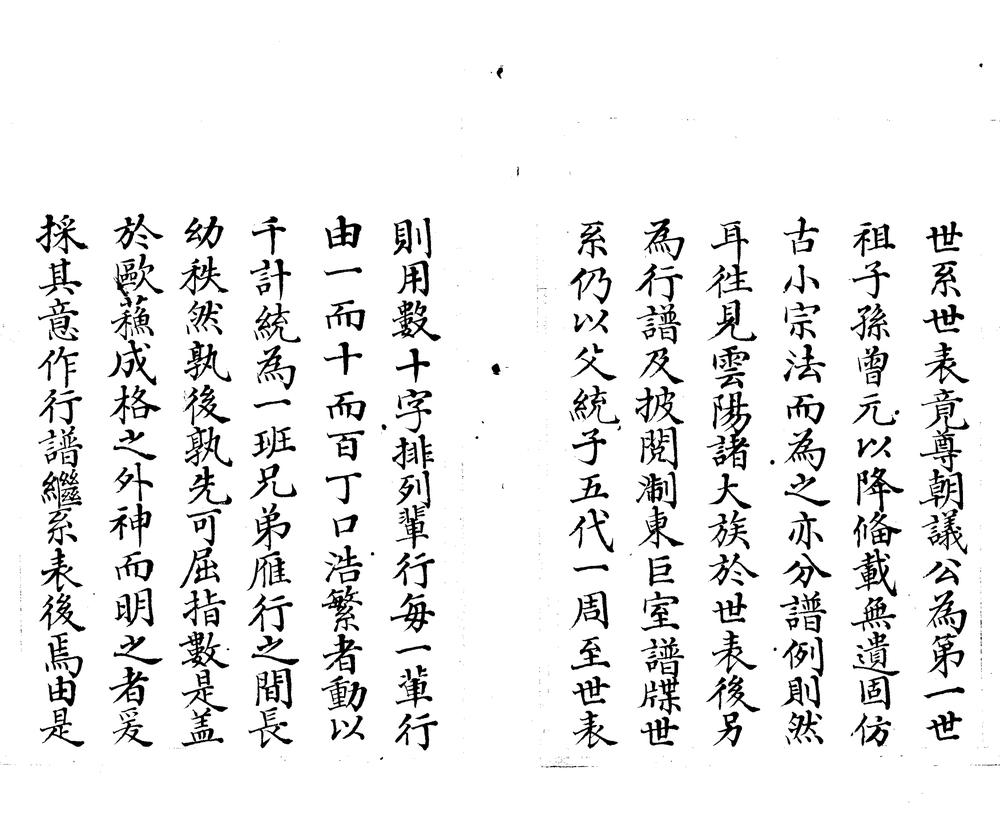 世系世表竟尊朝議公為第一世
祖子孫曾元以降俻載無遺固仿
古小宗法而為之亦分譜例則然
耳徃見雲陽諸大族於世表後另
為行譜及披閱淛東巨室譜牒世
系仍以父統子五代一周至世表
則用數十字排列輩行每一輩行
由一而十而百丁口浩繁者動以
千計統為一班兄弟雁行之間長
幼秩然孰後孰先可屈指數是盖
於歐蘓成格之外神而明之者爰
採其意作行譜繼系表後焉由是